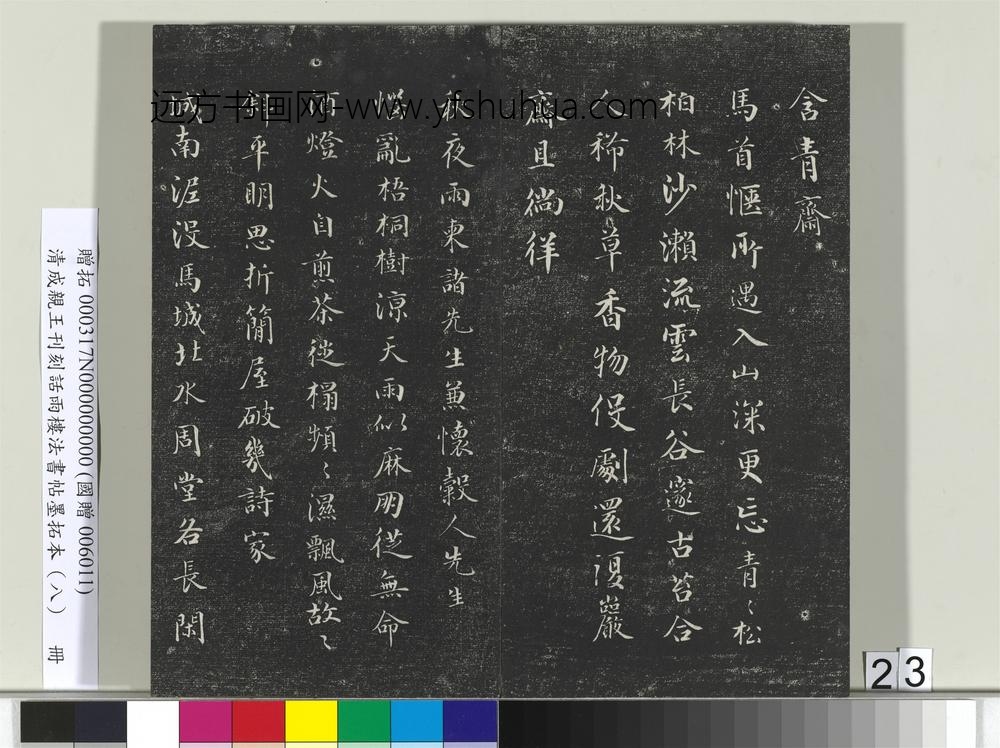 含青齋
馬首愜所遇入山深更忘青〻松
柏林沙瀨流雲長谷邃古苔合
人稀秋草香物役劇還復巖
齋且徜徉
秋夜雨柬諸先生兼懷穀人先生
撩亂梧桐樹涼天雨似麻閉從無命
酒燈火自煎茶徙榻頻〻濕飄風故〻
斜平明思折簡屋破幾詩家
城南泥沒馬城北水周堂各長閑
远方书画网-www.yfshuhua.com
贈拓 000317N000000000(國贈 006011)
清成親王刊刻話雨樓法書帖墨拓本(八) 冊
23